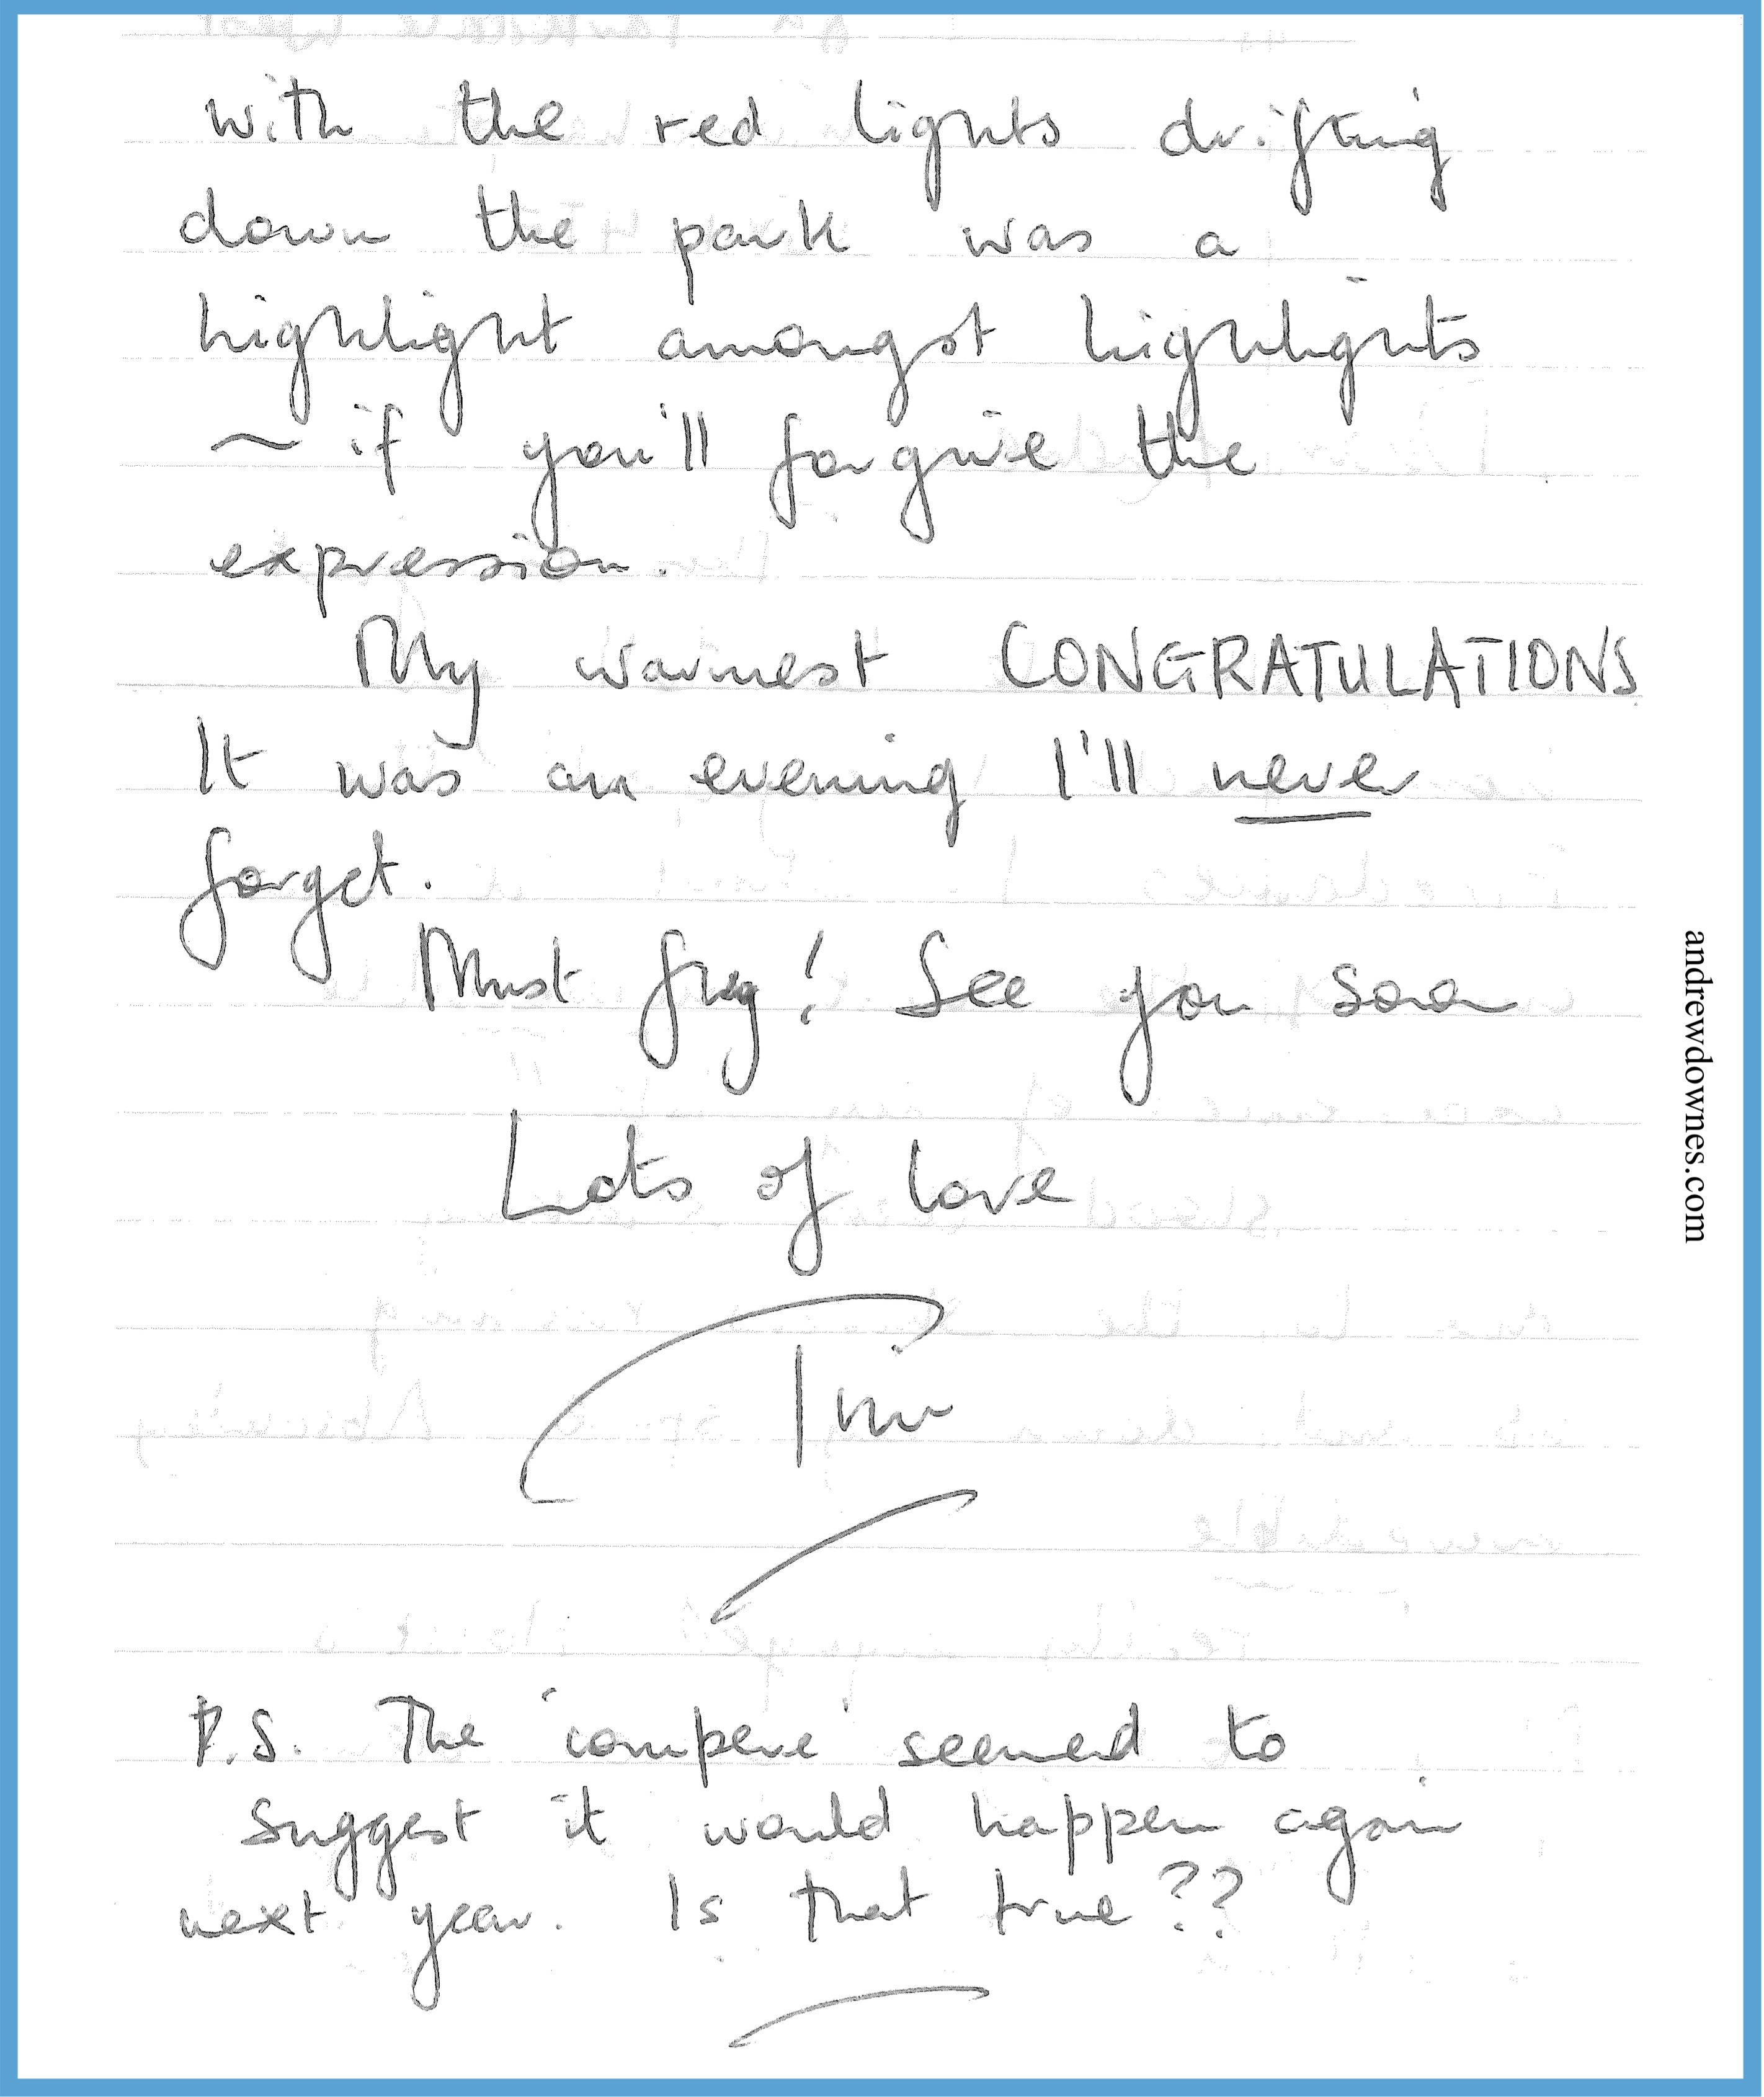 with the red lights drifting
down the park was a
highlight amongst highlights
~ if you'll forgive the
expression.
My warmest CONGRATULATIONS
It was an evening I'll never
forget.
Must fly! See you soon
Lots of love
Tim
P.S. The 'compere' seemed to
suggest it would happen again
next year. Is that true??
andrewdownes.com